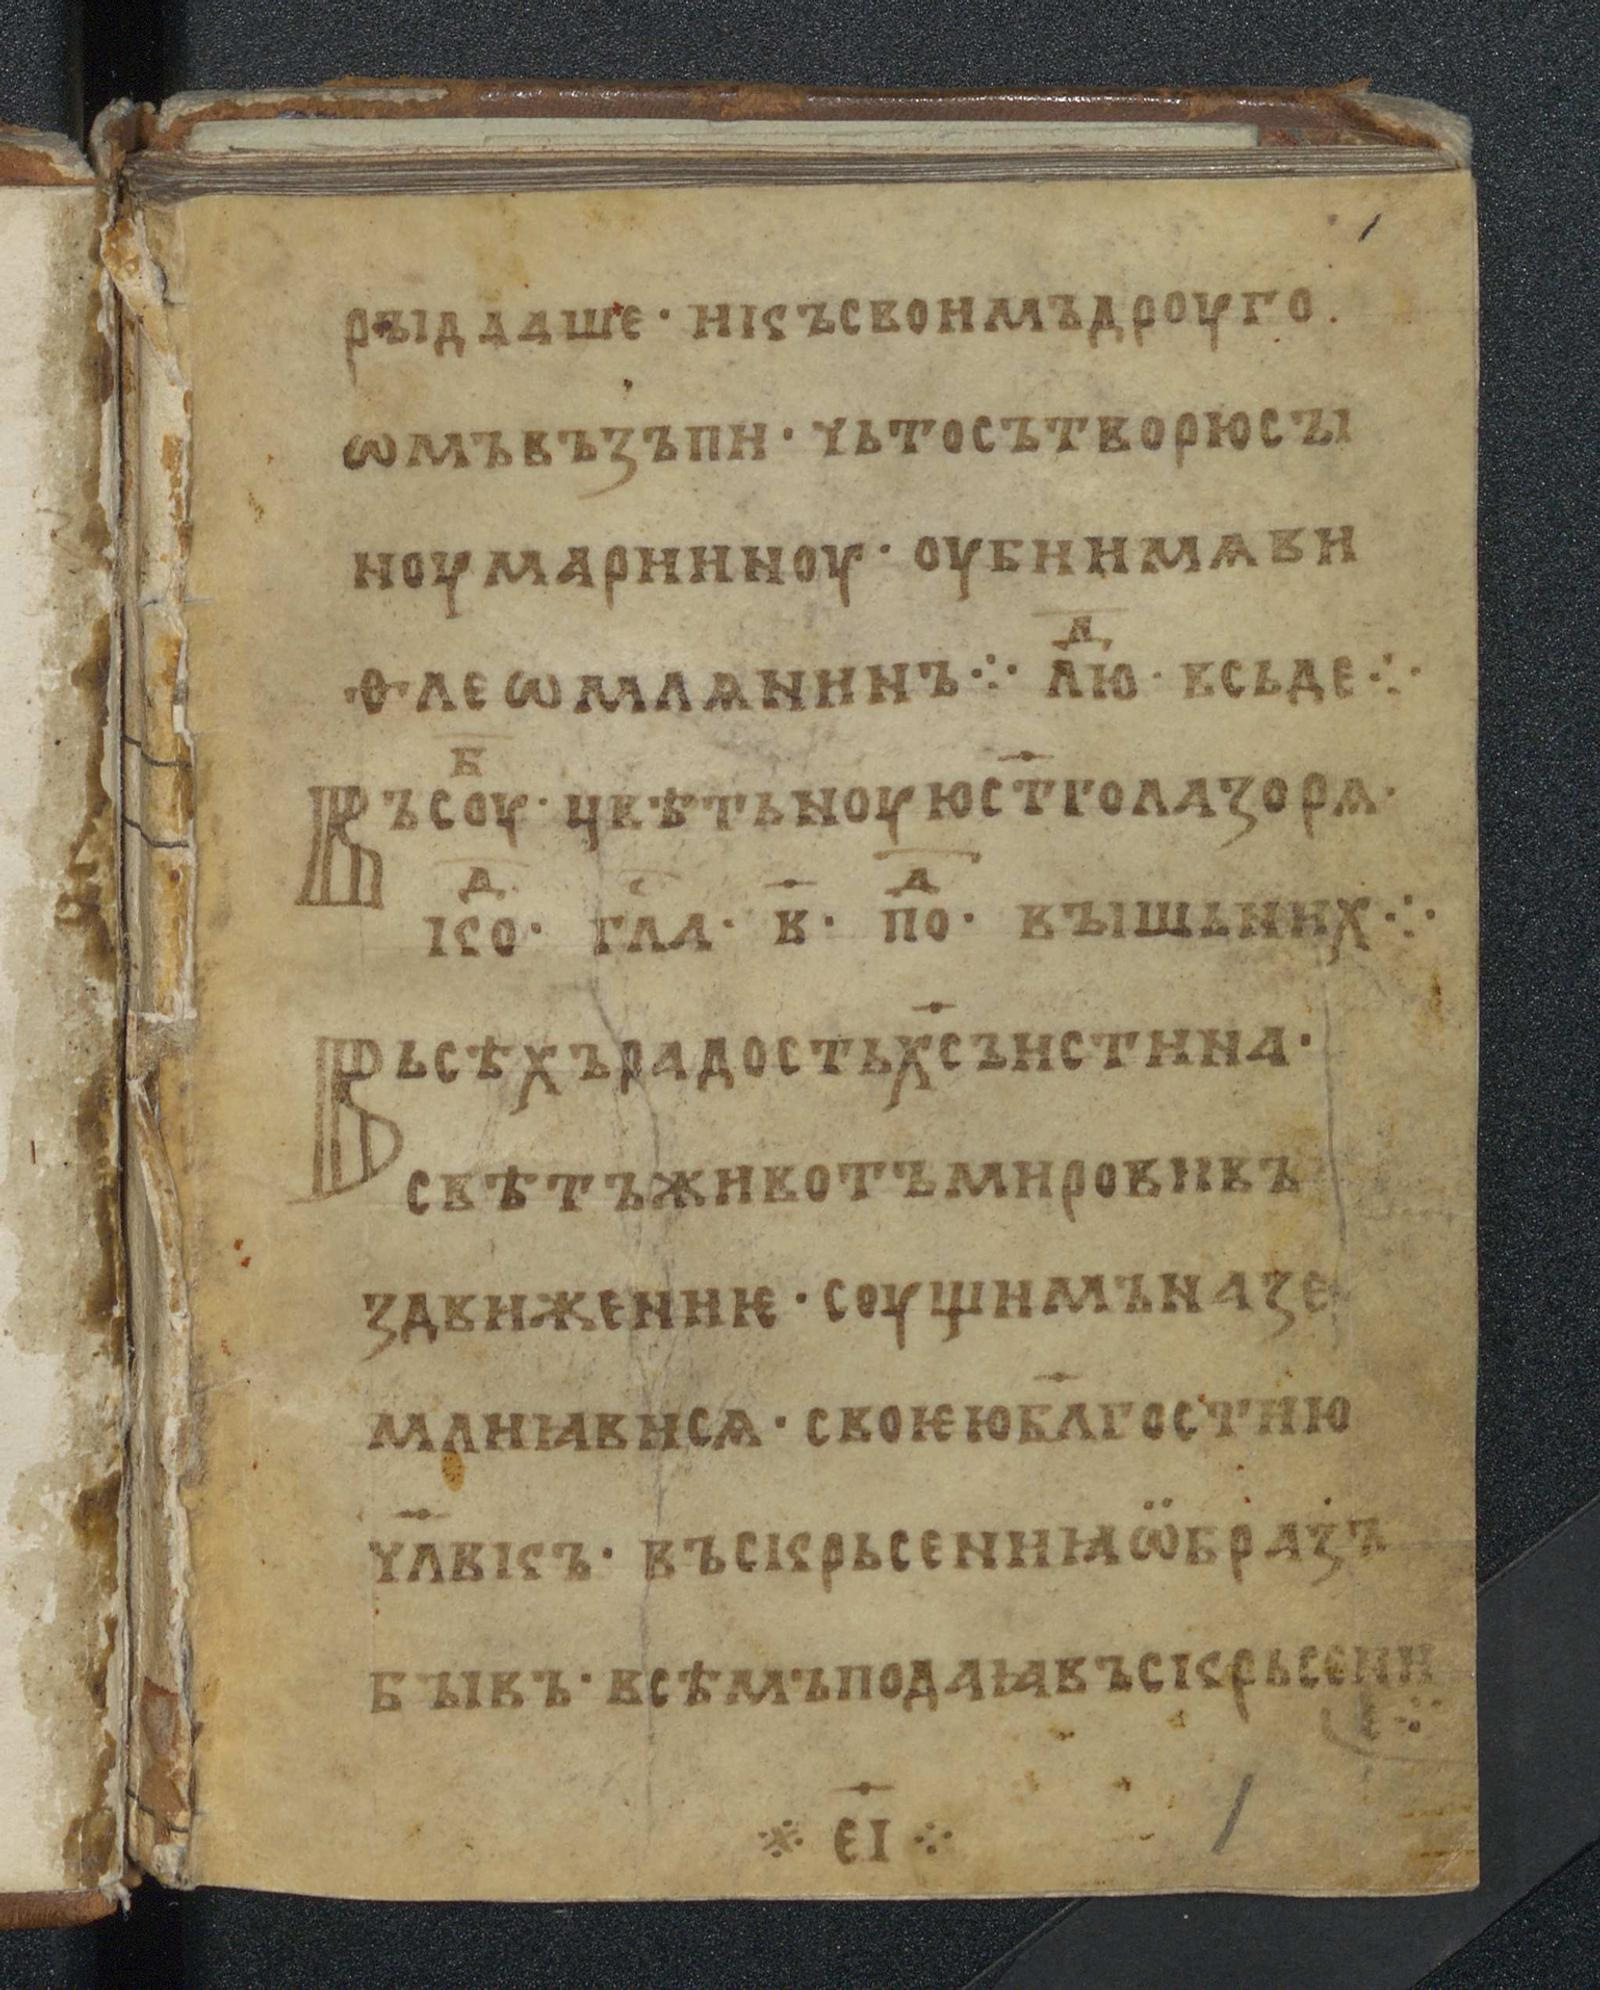 рꙑдааше · нкъсвоимъдроуго
ѡмъвъзъпи · чьтосътворюсꙑ
ноумариинноу · оубиимѧви
ѳлеѡмлѧнинъ ⁘ люⷣ · всьде ⁘
Въсоуⷠ · цвѣтьноуюст҃голазорѧ ·
коⷣ · глаⷭ · в҃ · поⷣ · вꙑшьнихⷯ ⁘
Вьсѣхърадостьх҃съистина ·
свѣтъживотъмировивъ
здвижение · соущимъназе
млиꙗвисѧ · своѥюбл҃гостию
чл҃вкъ · въскрьсенниꙗѡ̈бразъ
бꙑвъ · всѣмъподаꙗвъскрьсени
ѥ ⁘
※ е҃і ⁘
1